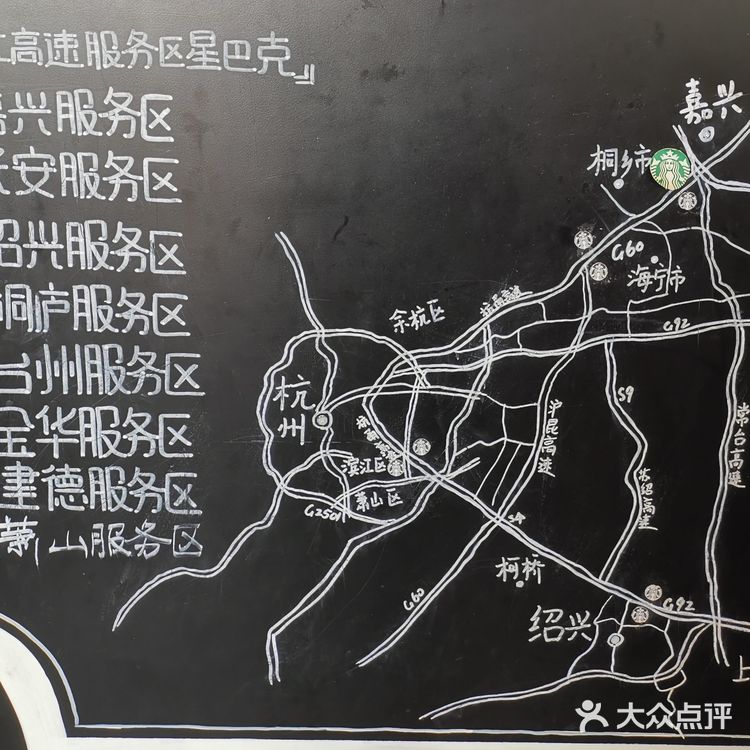 高速服务区星巴克』
嘉兴服务区
长安服务区
绍兴服务区
桐庐服务区
台州服务区
金华服务区
建德服务区
萧山服务区
嘉兴
桐乡市
G60
海宁市
余杭区
G92
杭州
S9
沪昆高速
常台高速
滨江区
萧山区
苏绍高速
G2501
S4
柯桥
G60
G92
绍兴
上
大众点评